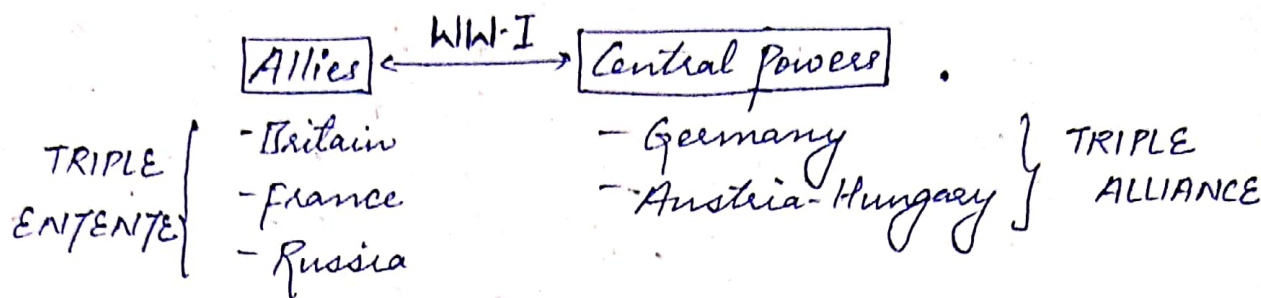 WW-I
Allies Central Powers .
TRIPLE ENTENTE
- Britain
- France
- Russia
- Germany
- Austria-Hungary
TRIPLE ALLIANCE